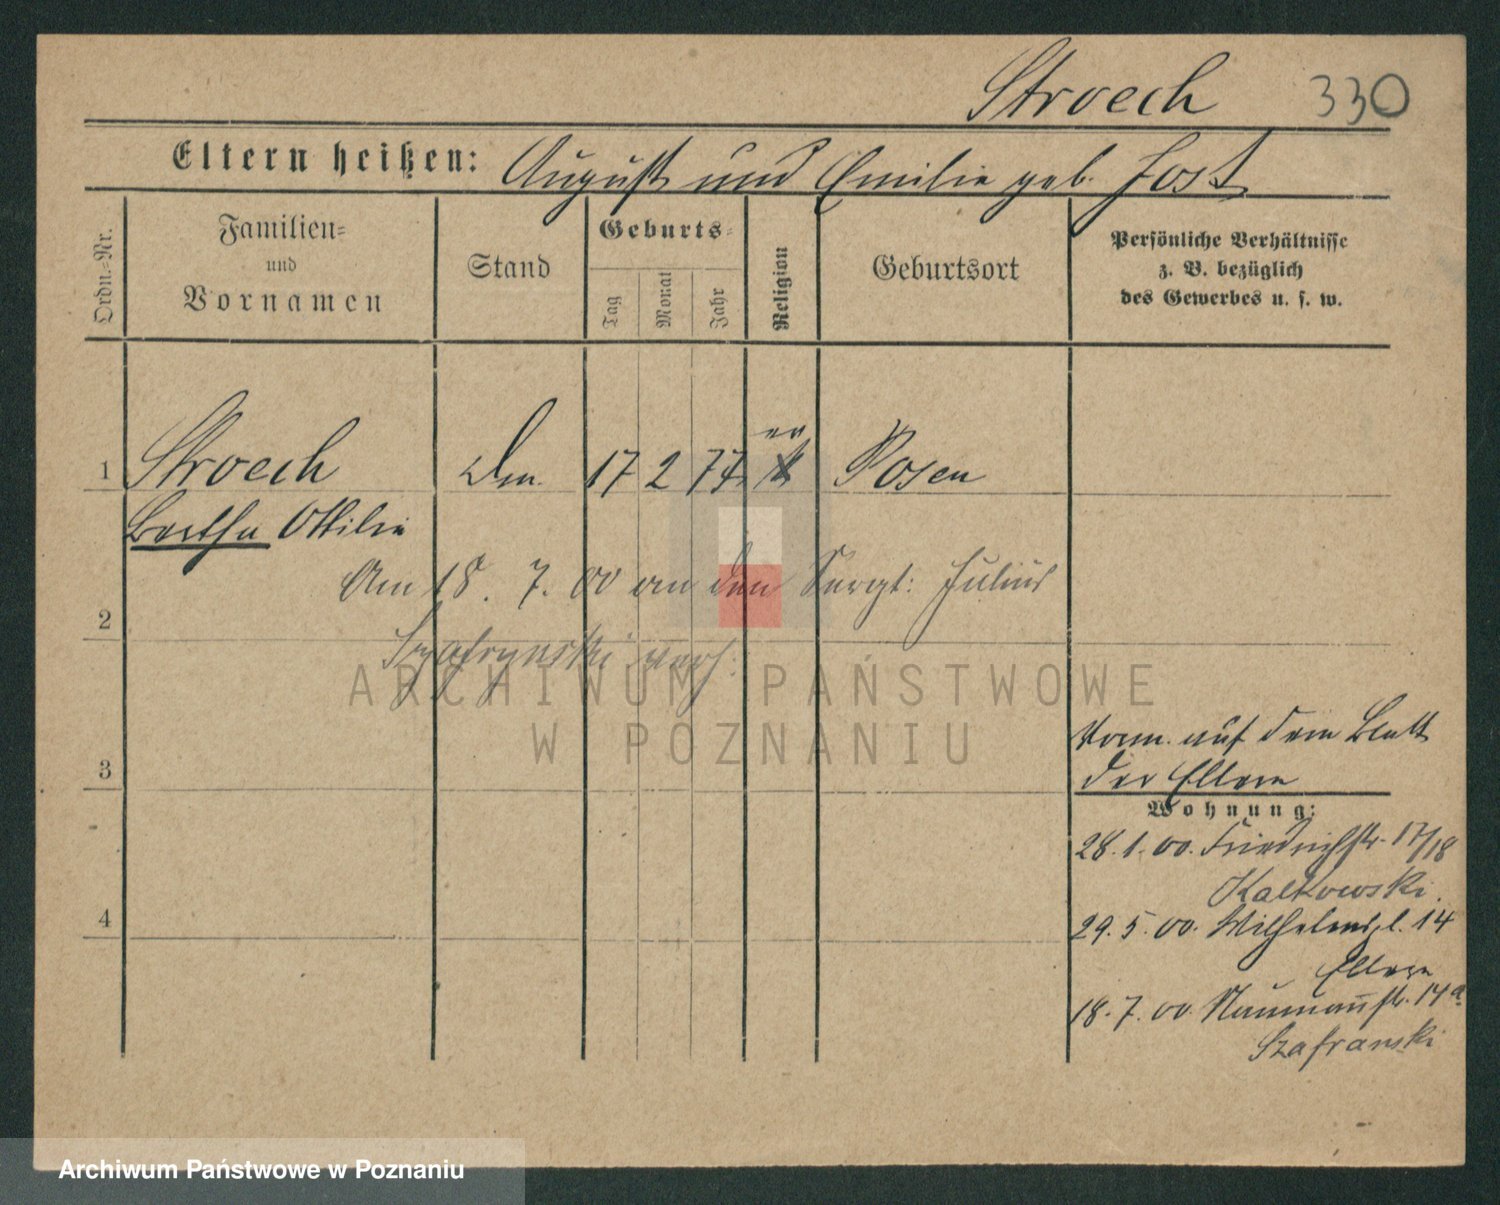 Stroech 330
Eltern heißen: August und Emilie geb. Jost
Ordn.-Nr.
Familien-
und
Vornamen
Stand
Geburts-
Tag
Monat
Jahr
Religion
Geburtsort
Persönliche Verhältnisse
z. B. bezüglich
des Gewerbes u. s. w.
ev
1 Stroech 17 2 77 Posen
Bertha Ottilie
Am 18. 7. 00 an den Sergt: Julius
2
verh.
ARCHIWUM PAŃSTWOWE
W POZNANIU
auf dem Blatt
3 der Eltern
Wohnung:
28. 1. 00. Friedrichstr. 17/18
Kalkowski.
4
29. 5. 00. Wilhelmspl. 14
Eltern
18. 7. 00. Naumannstr. 14a
Szafranski
Archiwum Państwowe w Poznaniu